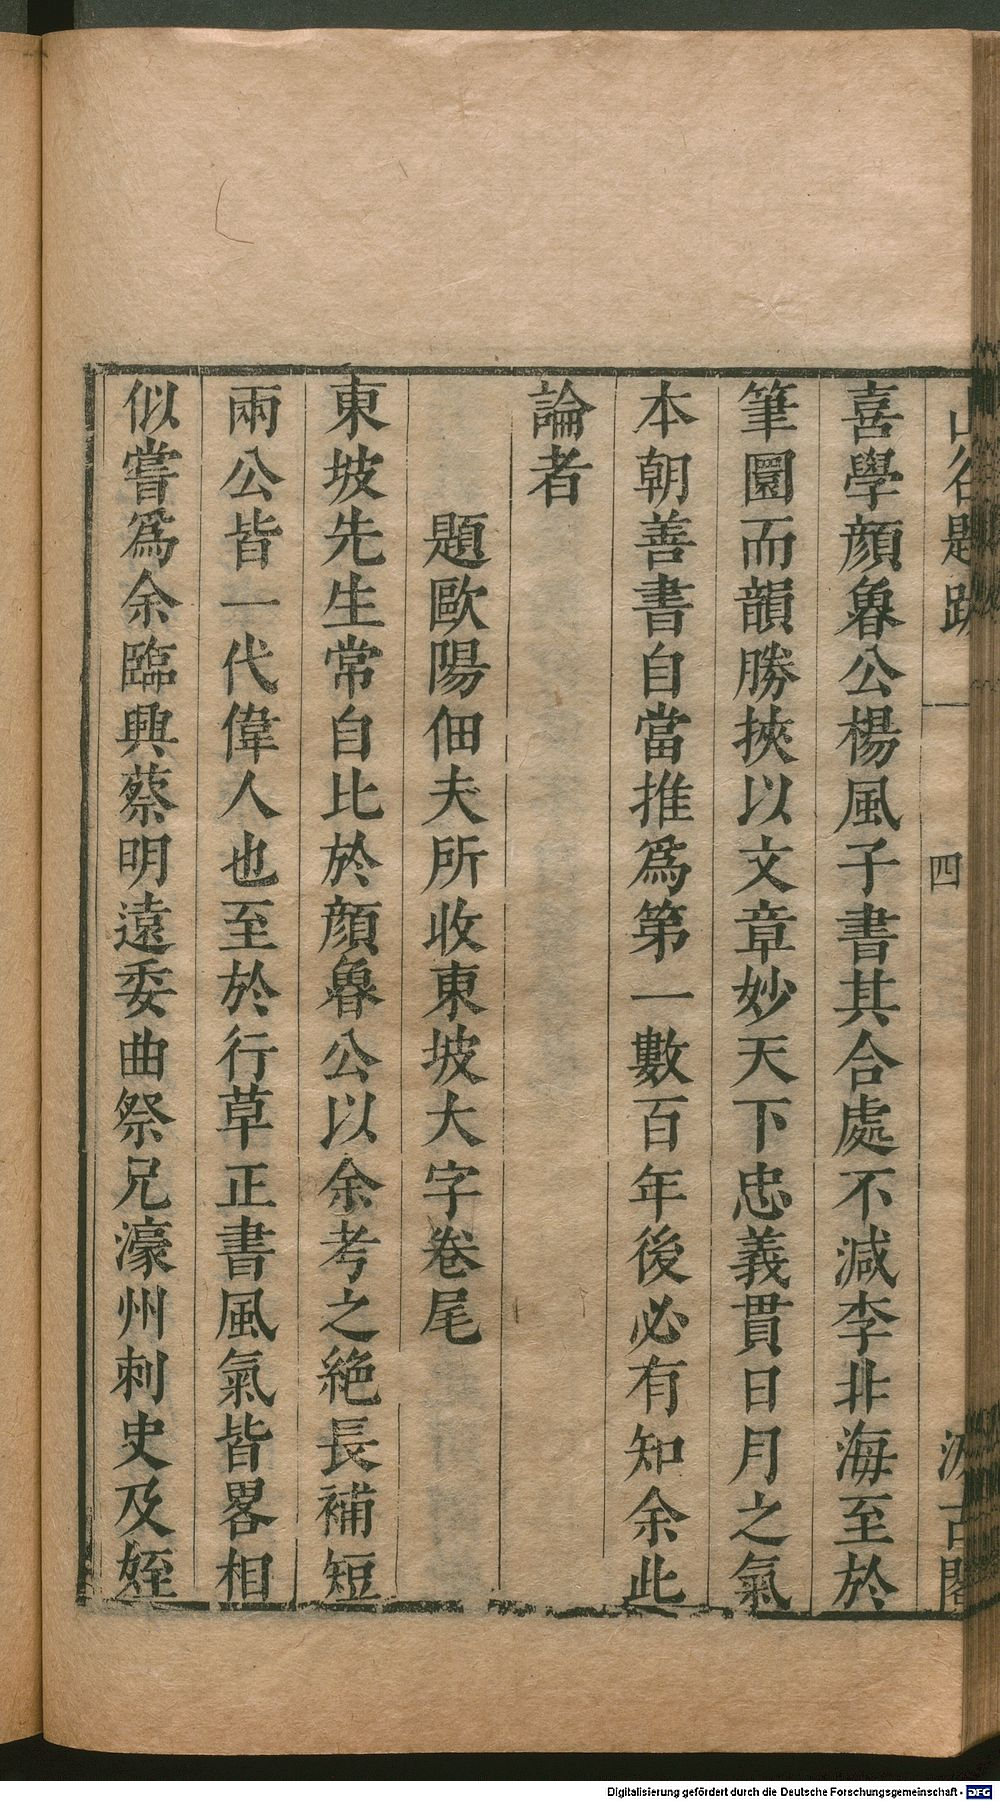 山谷題跋
四
汲古閣
喜學顔魯公楊風子書其合處不減李非海至於
筆圜而韻勝挾以文章妙天下忠義貫日月之氣
本朝善書自當推爲第一數百年後必有知余此
論者
題歐陽佃夫所收東坡大字卷尾
東坡先生常自比於顔魯公以余考之絶長補短
兩公皆一代偉人也至於行草正書風氣皆畧相
似嘗爲余臨與蔡明遠委曲祭兄濠州刺史及姪
Digitalisierung gefördert durch die Deutsche Forschungsgemeinschaft - DFG